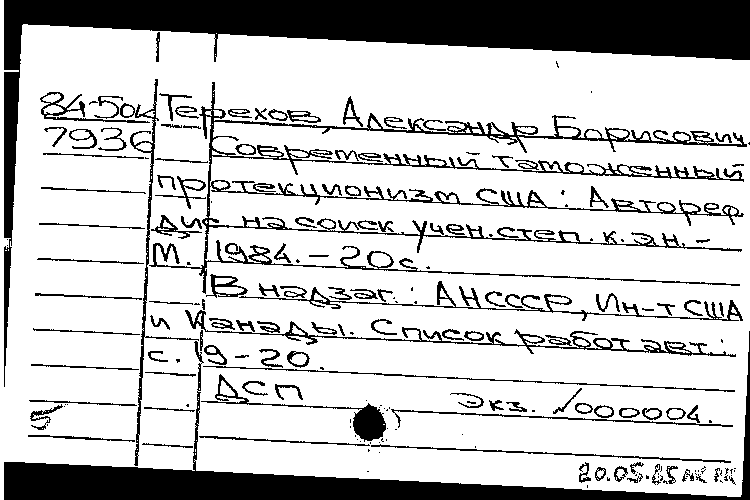 84-5ок Терехов, Александр Борисович.
7936 Современный таможенный
протекционизм США : Автореф
дис. на соиск. учен. степ. к. эн. -
М., 1984. - 20 с.
В надзаг. : АН СССР, Ин-т США
и Канады. Список работ авт.:
с. 19-20.
ДСП Экз. №000004.
5
20.05.85